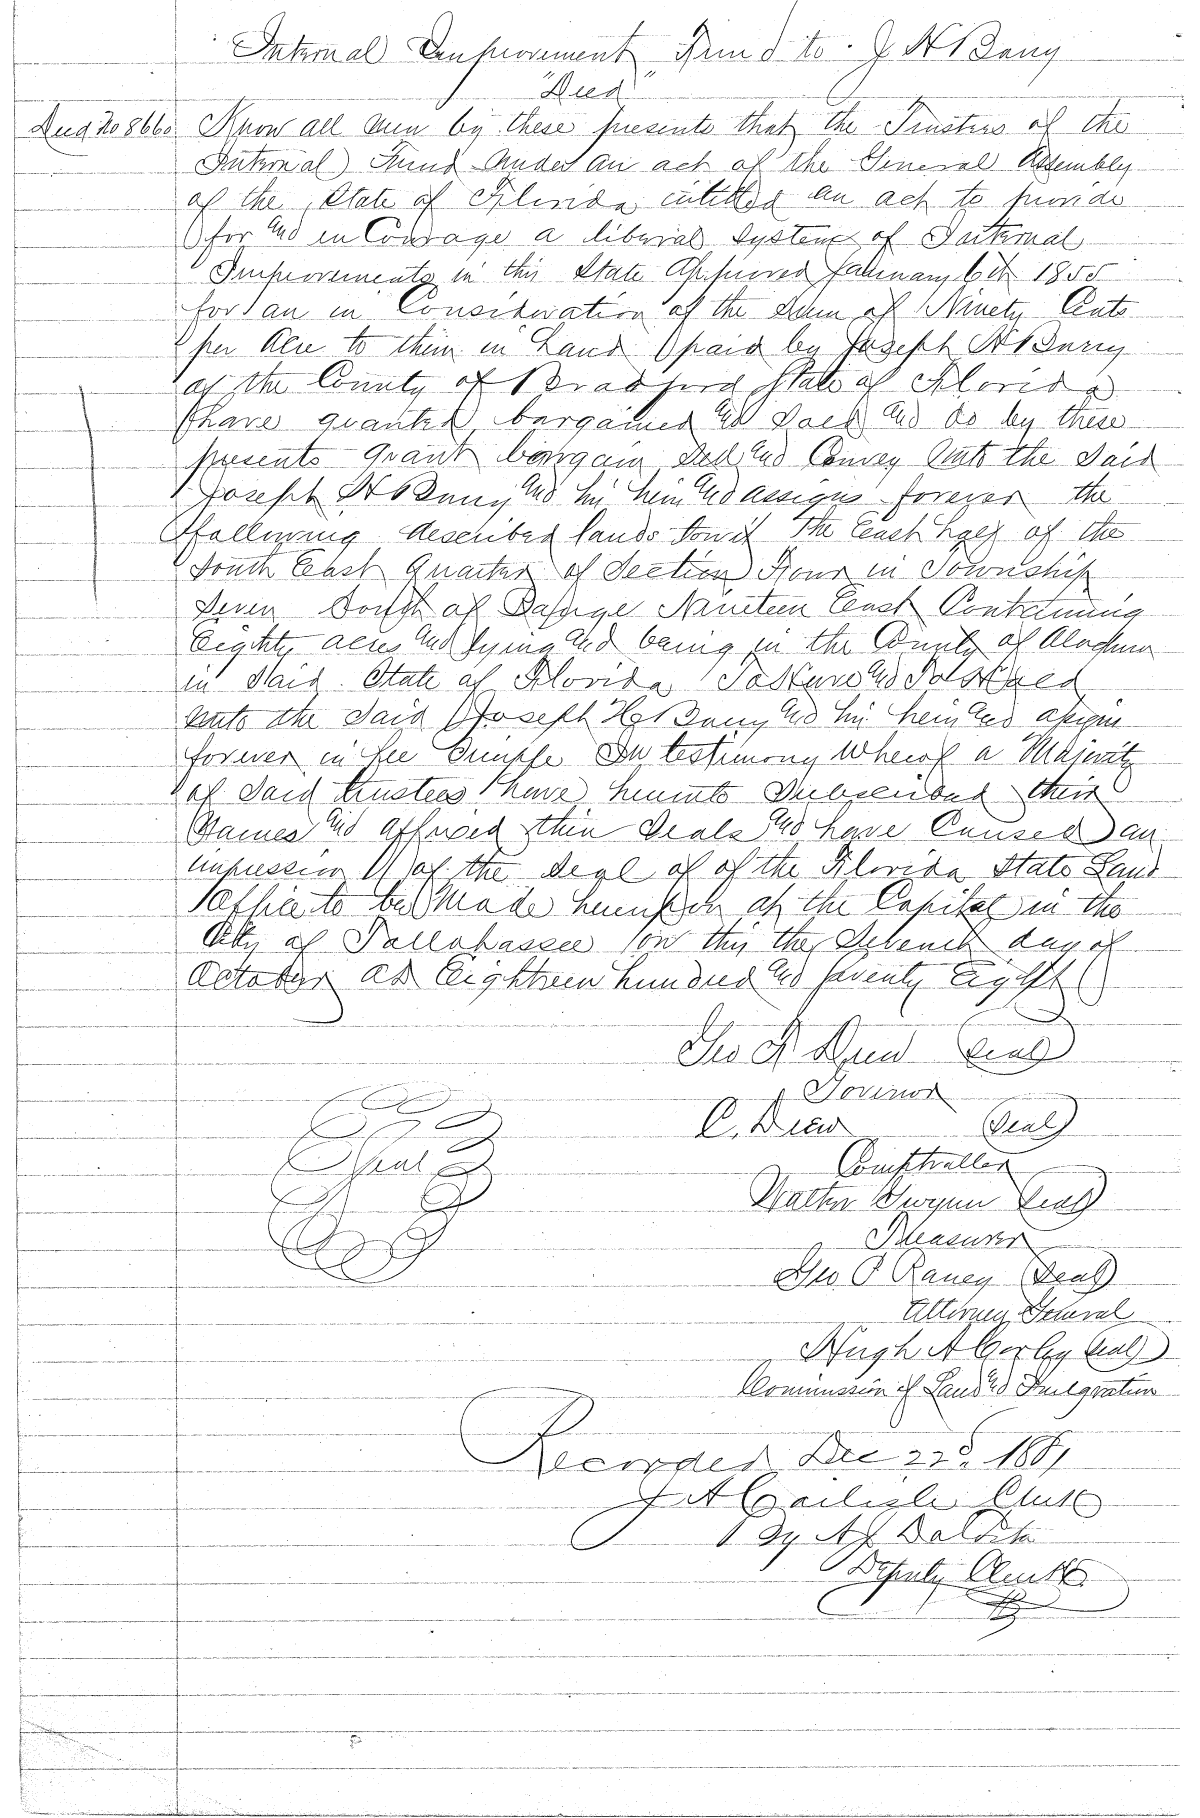 Internal Improvement Fund to J H Barry
"Deed"
Deed No 8660 Know all men by these presents that the Trustees of the
Internal Fund under an act of the General Assembly
of the State of Florida intitled an act to provide
for and in Courage a liberal system of Internal
Improvements in this State Approved January 6th 1855
for an in Consideration of the sum of Ninety Cents
per Acre to them in hand paid by Joseph H Barry
of the County of Bradford State of Florida
have granted bargained and sold and do by these
presents grant bargain sell and Convey unto the said
Joseph H Barry and his heirs and assigns forever the
following described lands towit The East half of the
South East Quarter of Section Four in Township
Seven South of Range Nineteen East Containing
Eighty acres and lying and being in the County of Alachua
in said State of Florida To Have and To Hold
unto the said Joseph H Barry and his heirs and assigns
forever in fee simple In testimony Whereof a Majority
of said trustees have hereunto Subscribed their
Names and affixed their Seals and have Caused an
impression of the seal of of the Florida State Land
Office to be Made hereupon at the Capital in the
City of Tallahassee on this the Seventh day of
October AD Eighteen hundred and seventy Eight
Geo F Drew (Seal)
Govenor
C. Drew (Seal)
Comptroller
Seal
Walter Gwynn (Seal)
Treasurer
Geo P Raney (Seal)
Attorney General
Hugh A Corley (Seal)
Commission of Land and Imigration
Recorded Dec 22d 1881
J A Carlisle Clerk
By
Deputy Clerk